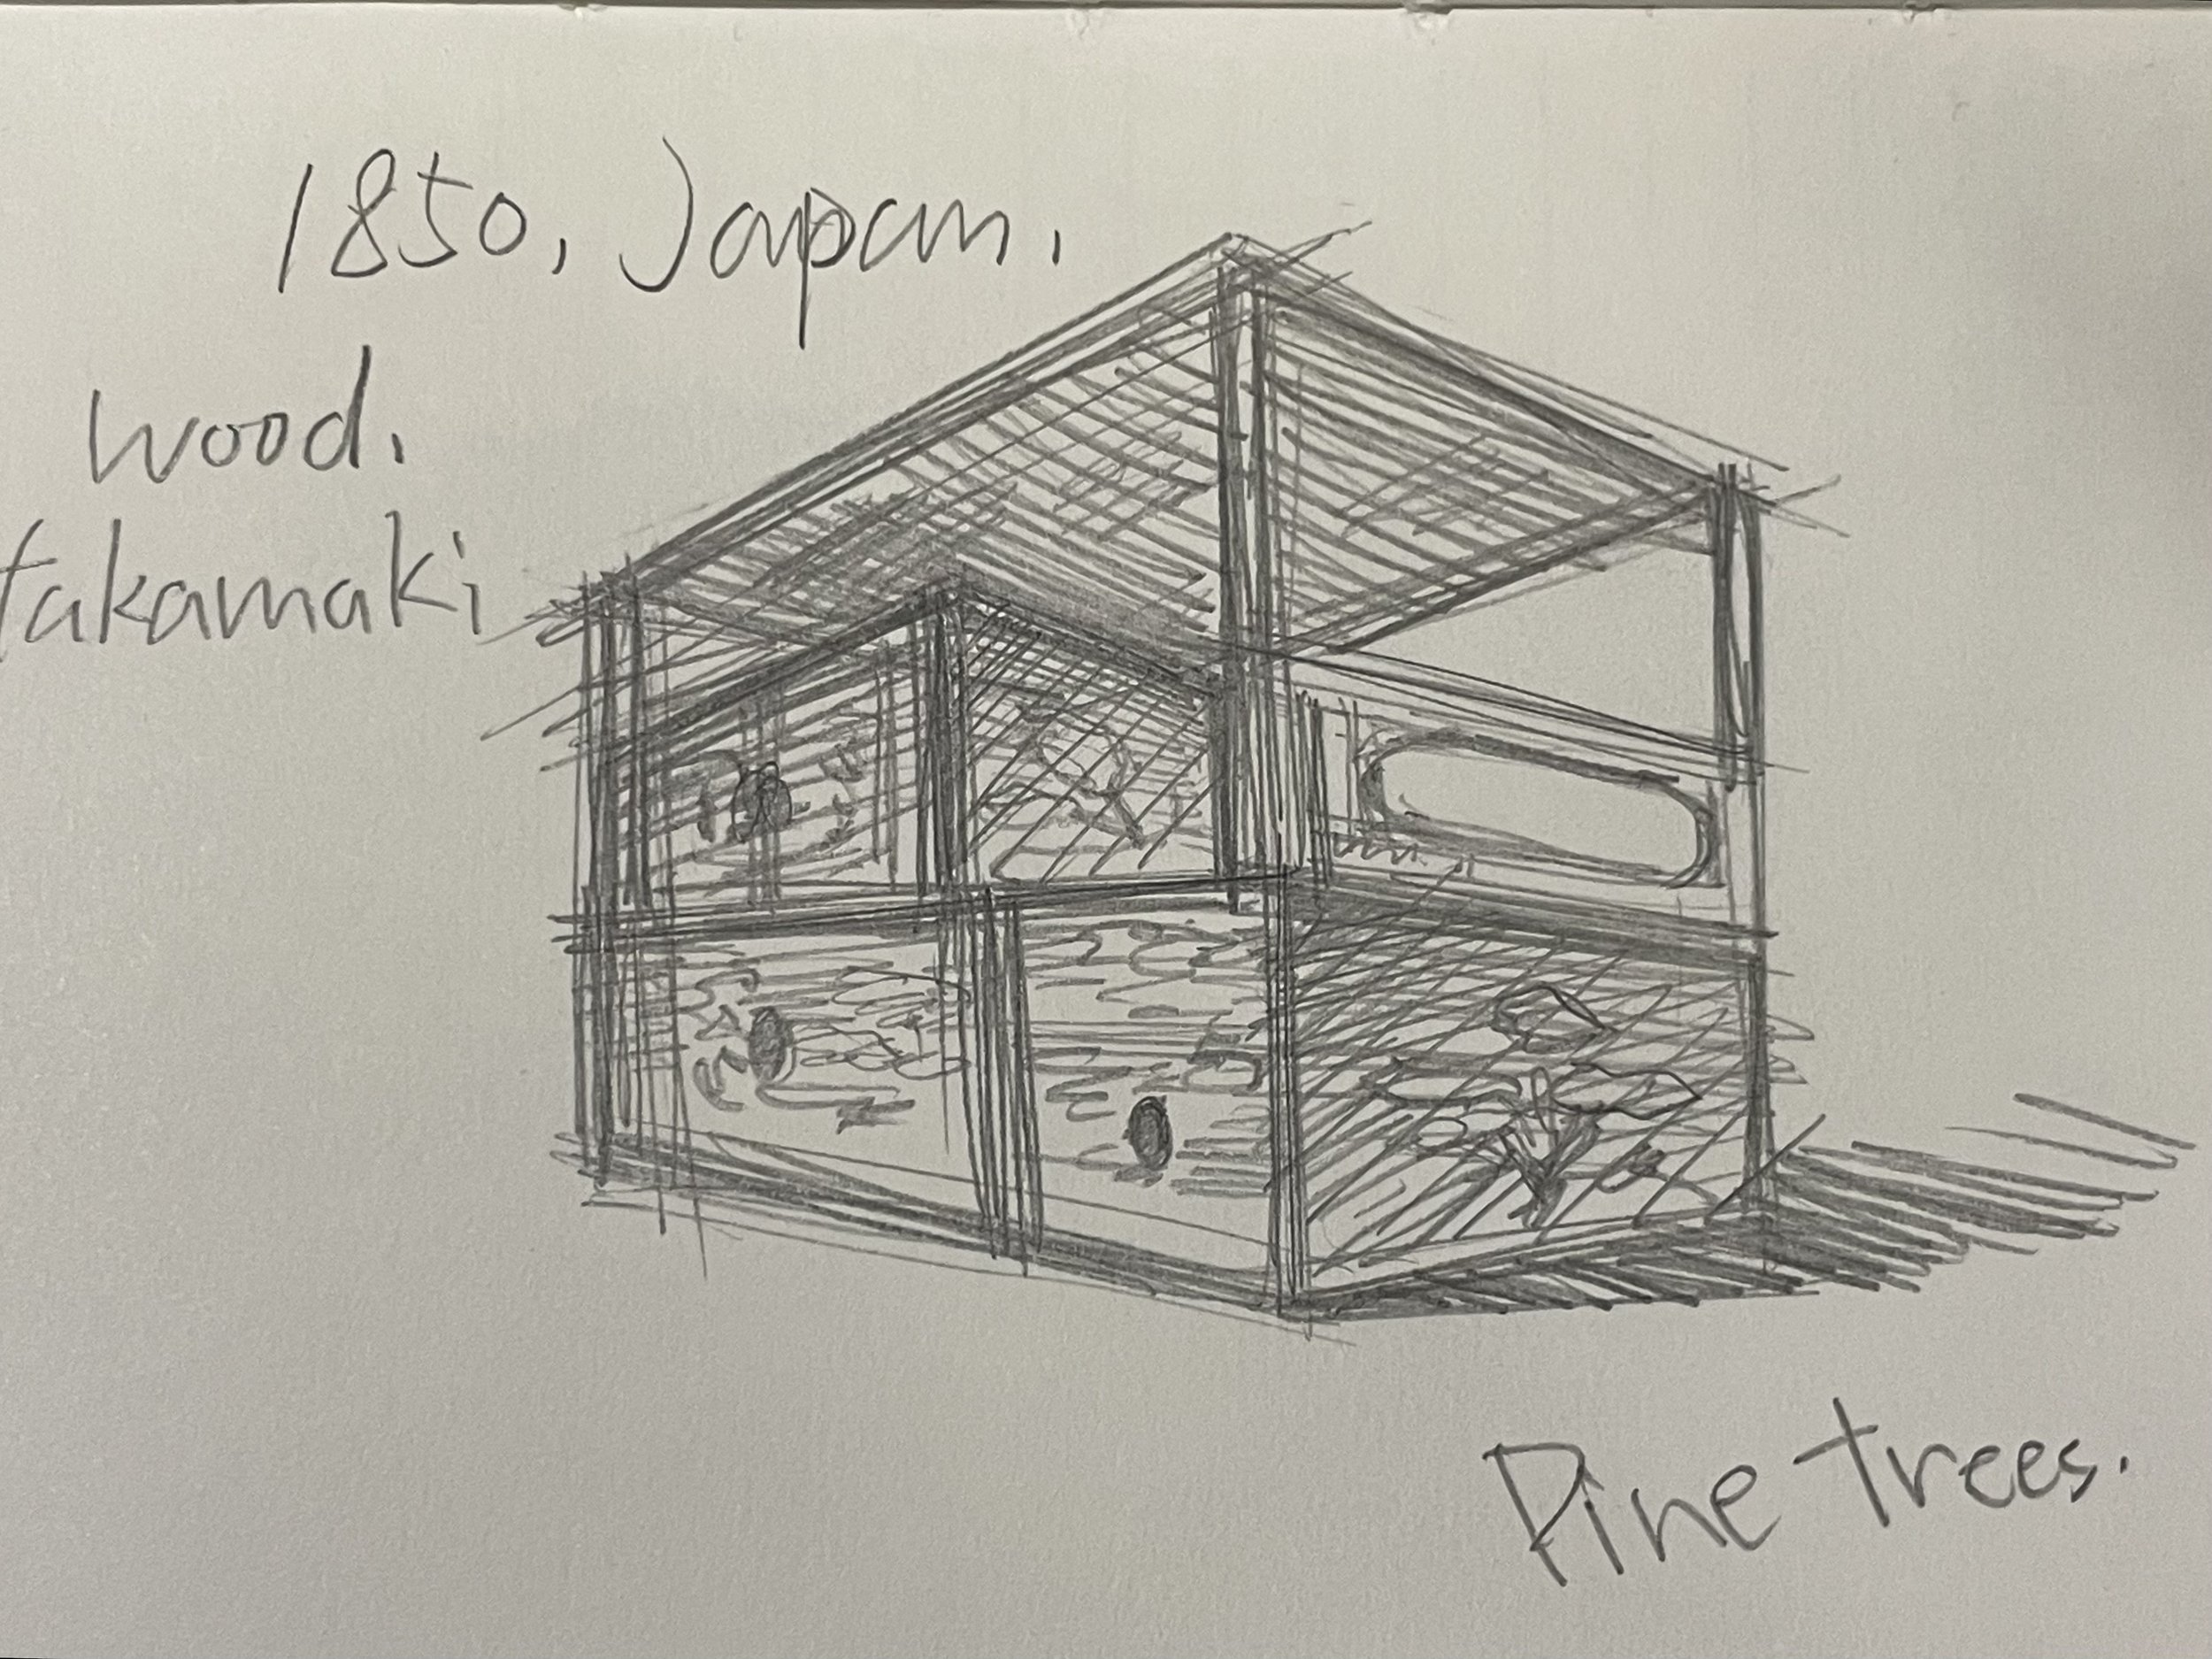 1850, Japan.
wood.
takamaki
Pine trees.